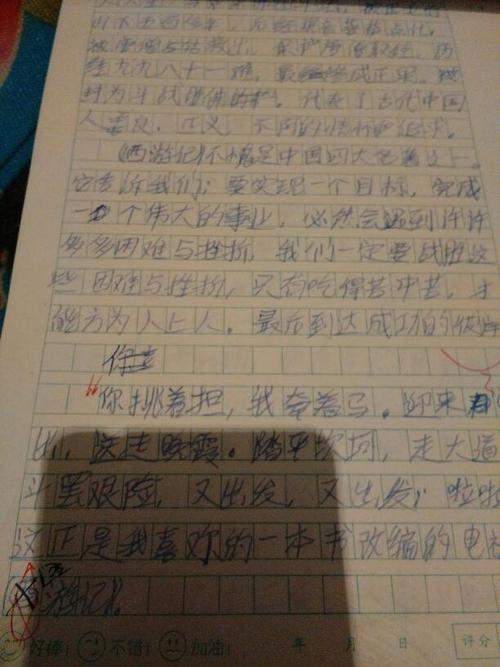 山下五百余年,后经观音菩萨点化,
被唐僧与救出,保护唐僧取经,历
经九九八十一难,最终修成正果,被
封为斗战胜佛的。代表了古代中国
人善良,正义,不阿的追求。
《西游记》不愧是中国四大名著之一。
它告诉我们:要实现一个目标,完成
一个伟大的事业,必然会遇到许许
多多困难与挫折,我们一定要战胜这
些困难与挫折,只有吃得苦中苦,才
能方为人上人。最后到达成功的彼岸
你
"你挑着担,我牵着马。迎来日
出,送走晚霞。踏平坎坷,走大道
斗罢艰险,又出发,又出发;啦啦
这正是我喜欢的一本书改编的电
游记》。
好棒: 不错: 加油: 年 月 日 评分